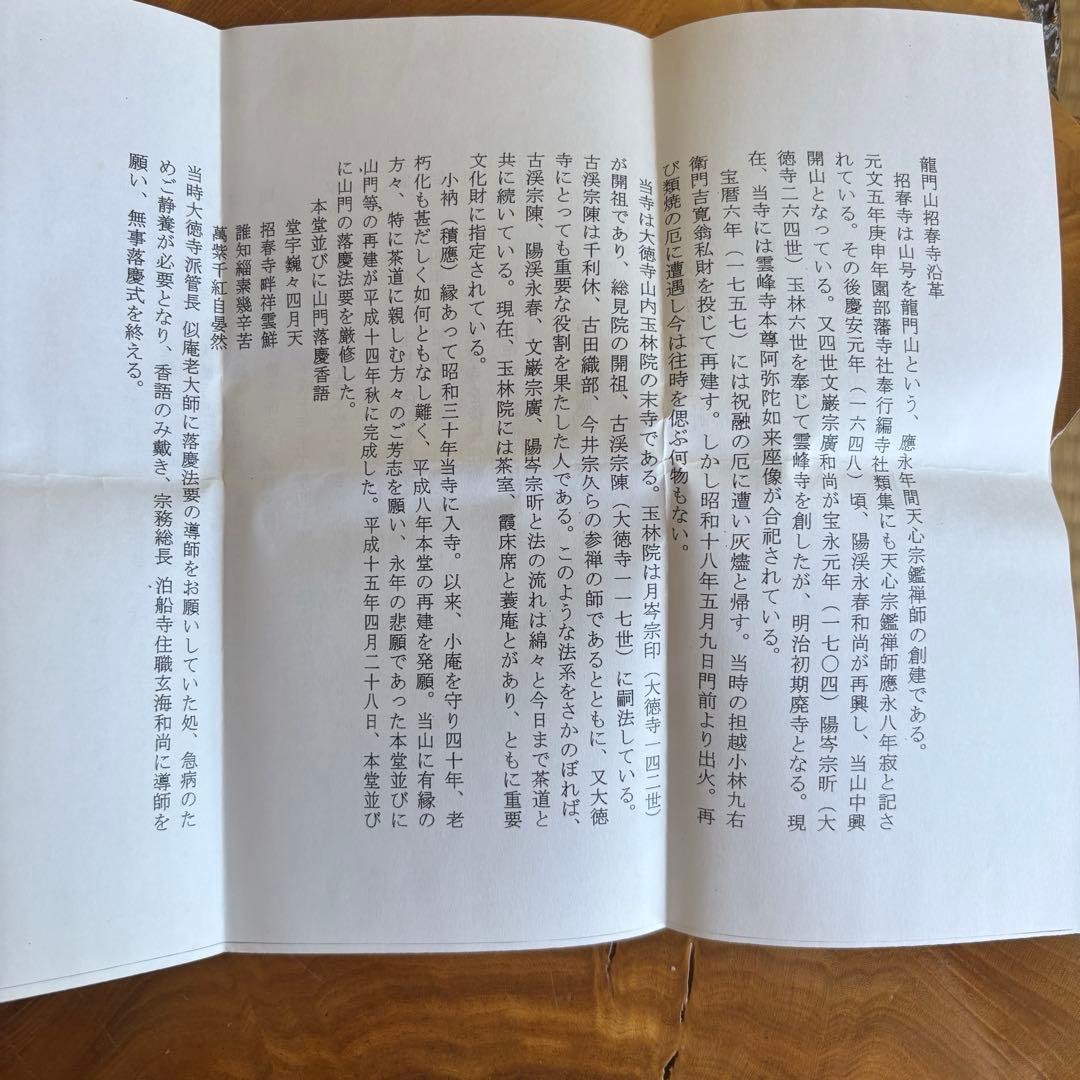 龍門山招春寺沿革
招春寺は山号を龍門山という、應永年間天心宗鑑禅師の創建である。
元文五年庚申年園部藩寺社奉行編寺社類集にも天心宗鑑禅師應永八年寂と記さ
れている。その後慶安元年（一六四八）頃、陽渓永春和尚が再興し、当山中興
開山となっている。又四世文巌宗廣和尚が宝永元年（一七〇四）陽岑宗昕（大
徳寺二六四世）玉林六世を奉じて雲峰寺を創したが、明治初期廃寺となる。現
在、当寺には雲峰寺本尊阿弥陀如来座像が合祀されている。
宝暦六年（一七五七）には祝融の厄に遭い灰燼と帰す。当時の担越小林九右
衛門吉寛翁私財を投じて再建す。しかし昭和十八年五月九日門前より出火。再
び類焼の厄に遭遇し今は往時を偲ぶ何物もない。
当寺は大徳寺山内玉林院の末寺である。玉林院は月岑宗印（大徳寺一四二世）
が開祖であり、総見院の開祖、古渓宗陳（大徳寺一一七世）に嗣法している。
古渓宗陳は千利休、古田織部、今井宗久らの参禅の師であるとともに、又大徳
寺にとっても重要な役割を果たした人である。このような法系をさかのぼれば、
古渓宗陳、陽渓永春、文巌宗廣、陽岑宗昕と法の流れは綿々と今日まで茶道と
共に続いている。現在、玉林院には茶室、霞床席と蓑庵とがあり、ともに重要
文化財に指定されている。
小衲（積應）縁あって昭和三十年当寺に入寺。以来、小庵を守り四十年、老
朽化も甚だしく如何ともなし難く、平成八年本堂の再建を発願。当山に有縁の
方々、特に茶道に親しむ方々のご芳志を願い、永年の悲願であった本堂並びに
山門等の再建が平成十四年秋に完成した。平成十五年四月二十八日、本堂並び
に山門の落慶法要を厳修した。
本堂並びに山門落慶香語
堂宇巍々四月天
招春寺畔祥雲鮮
誰知緇素幾辛苦
萬紫千紅自晏然
当時大徳寺派管長 似庵老大師に落慶法要の導師をお願いしていた処、急病のた
めご静養が必要となり、香語のみ戴き、宗務総長 泊船寺住職玄海和尚に導師を
願い、無事落慶式を終える。